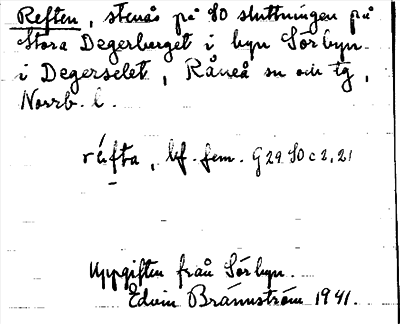 Reften, stenås på SO sluttningen på
Stora Degerberget i byn Sörbyn
i Degerselet, Råneå sn och tg,
Norrb. l.
réfta, bf. fem. G 29 SO c 2, 21
Uppgiften från Sörbyn.
Edvin Brännström 1941.